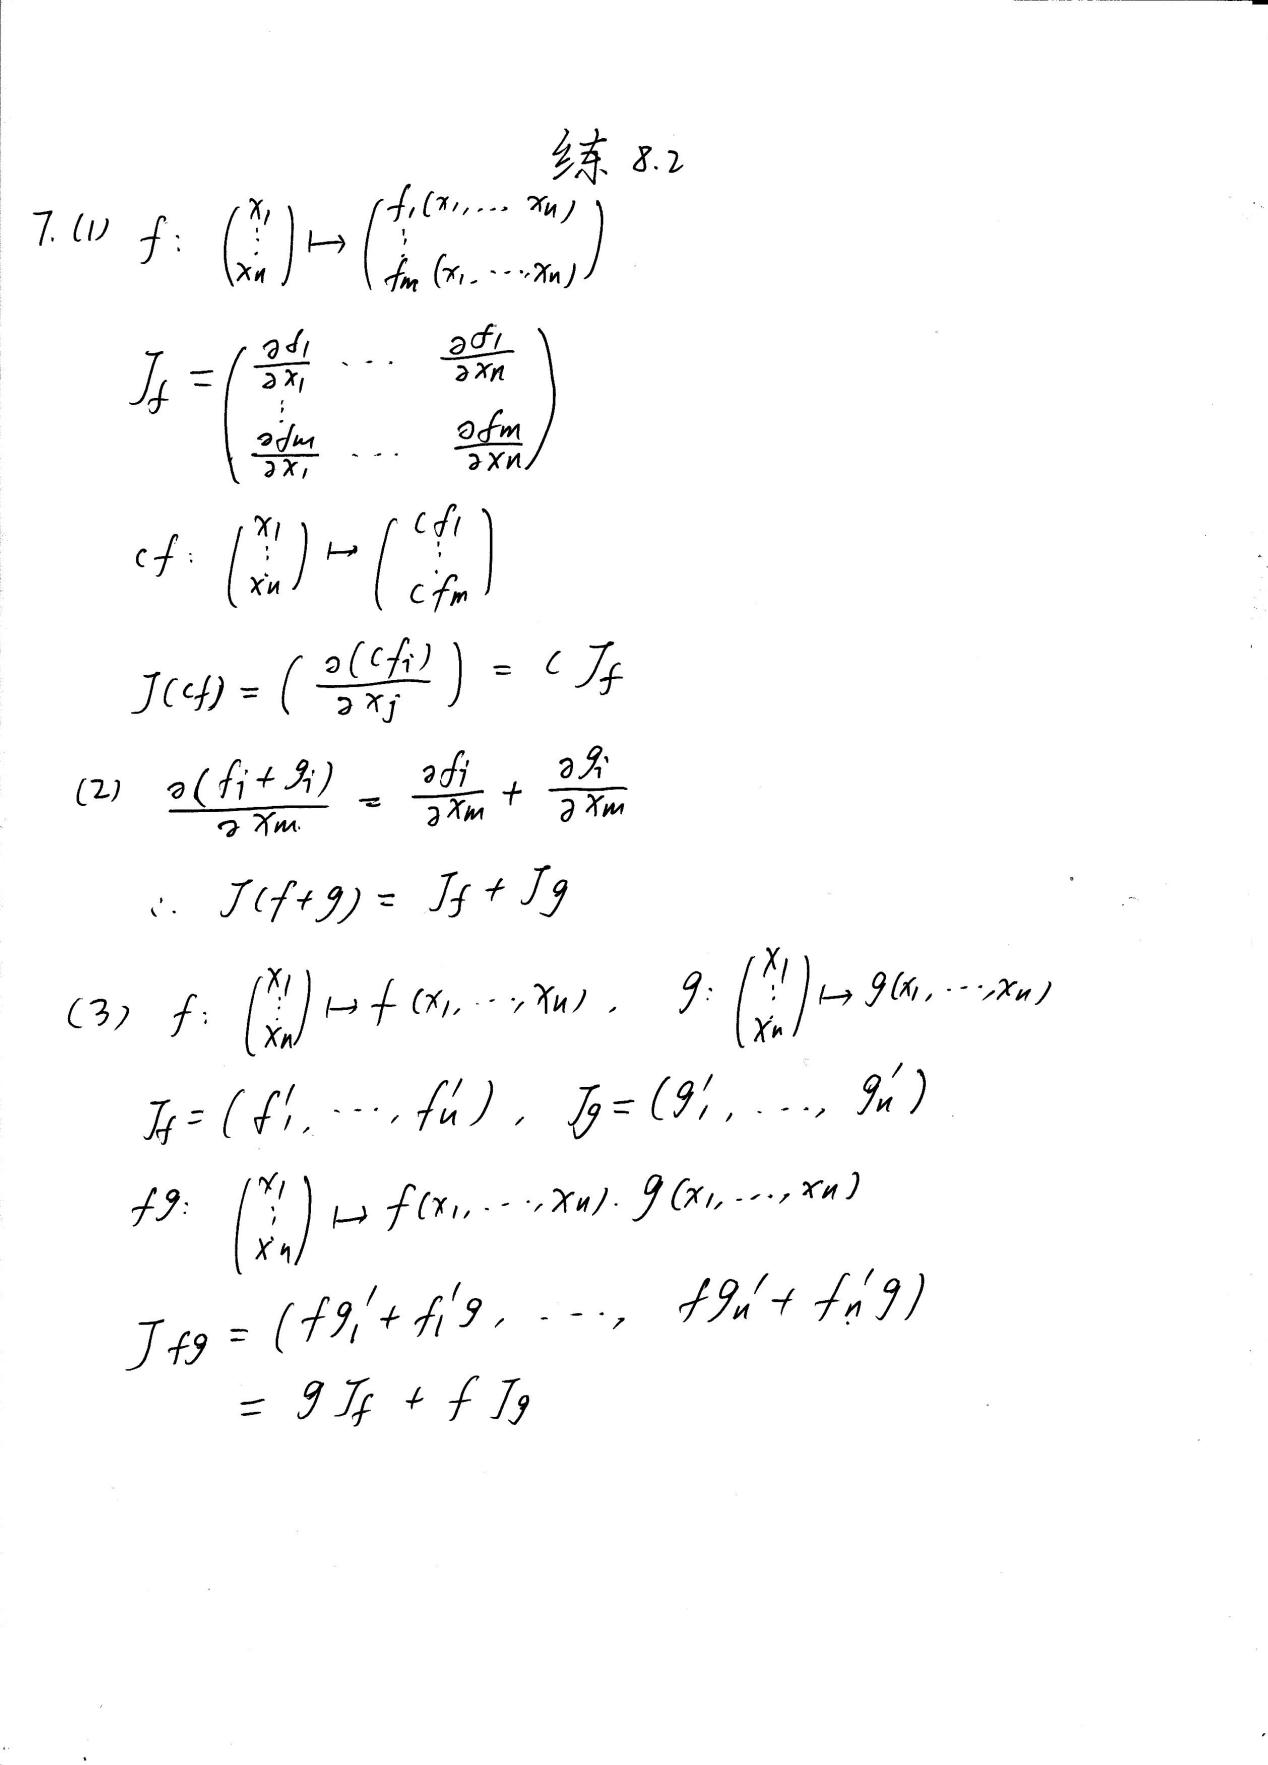 练 8.2
7. (1) f: (x₁ ⋮ xn) ↦ (f₁(x₁, ... xn) ⋮ fm(x₁, ..., xn))
Jf = (∂f₁/∂x₁ ... ∂f₁/∂xn ⋮ ∂fm/∂x₁ ... ∂fm/∂xn)
cf: (x₁ ⋮ xn) ↦ (cf₁ ⋮ cfm)
J(cf) = (∂(cfi)/∂xj) = c Jf
(2) ∂(fi + gi)/∂xm = ∂fi/∂xm + ∂gi/∂xm
∴ J(f+g) = Jf + Jg
(3) f: (x₁ ⋮ xn) ↦ f(x₁, ..., xn), g: (x₁ ⋮ xn) ↦ g(x₁, ..., xn)
Jf = (f₁', ..., fn'), Jg = (g₁', ..., gn')
fg: (x₁ ⋮ xn) ↦ f(x₁, ..., xn) · g(x₁, ..., xn)
Jfg = (fg₁' + f₁'g, ..., fgn' + fn'g)
= g Jf + f Jg